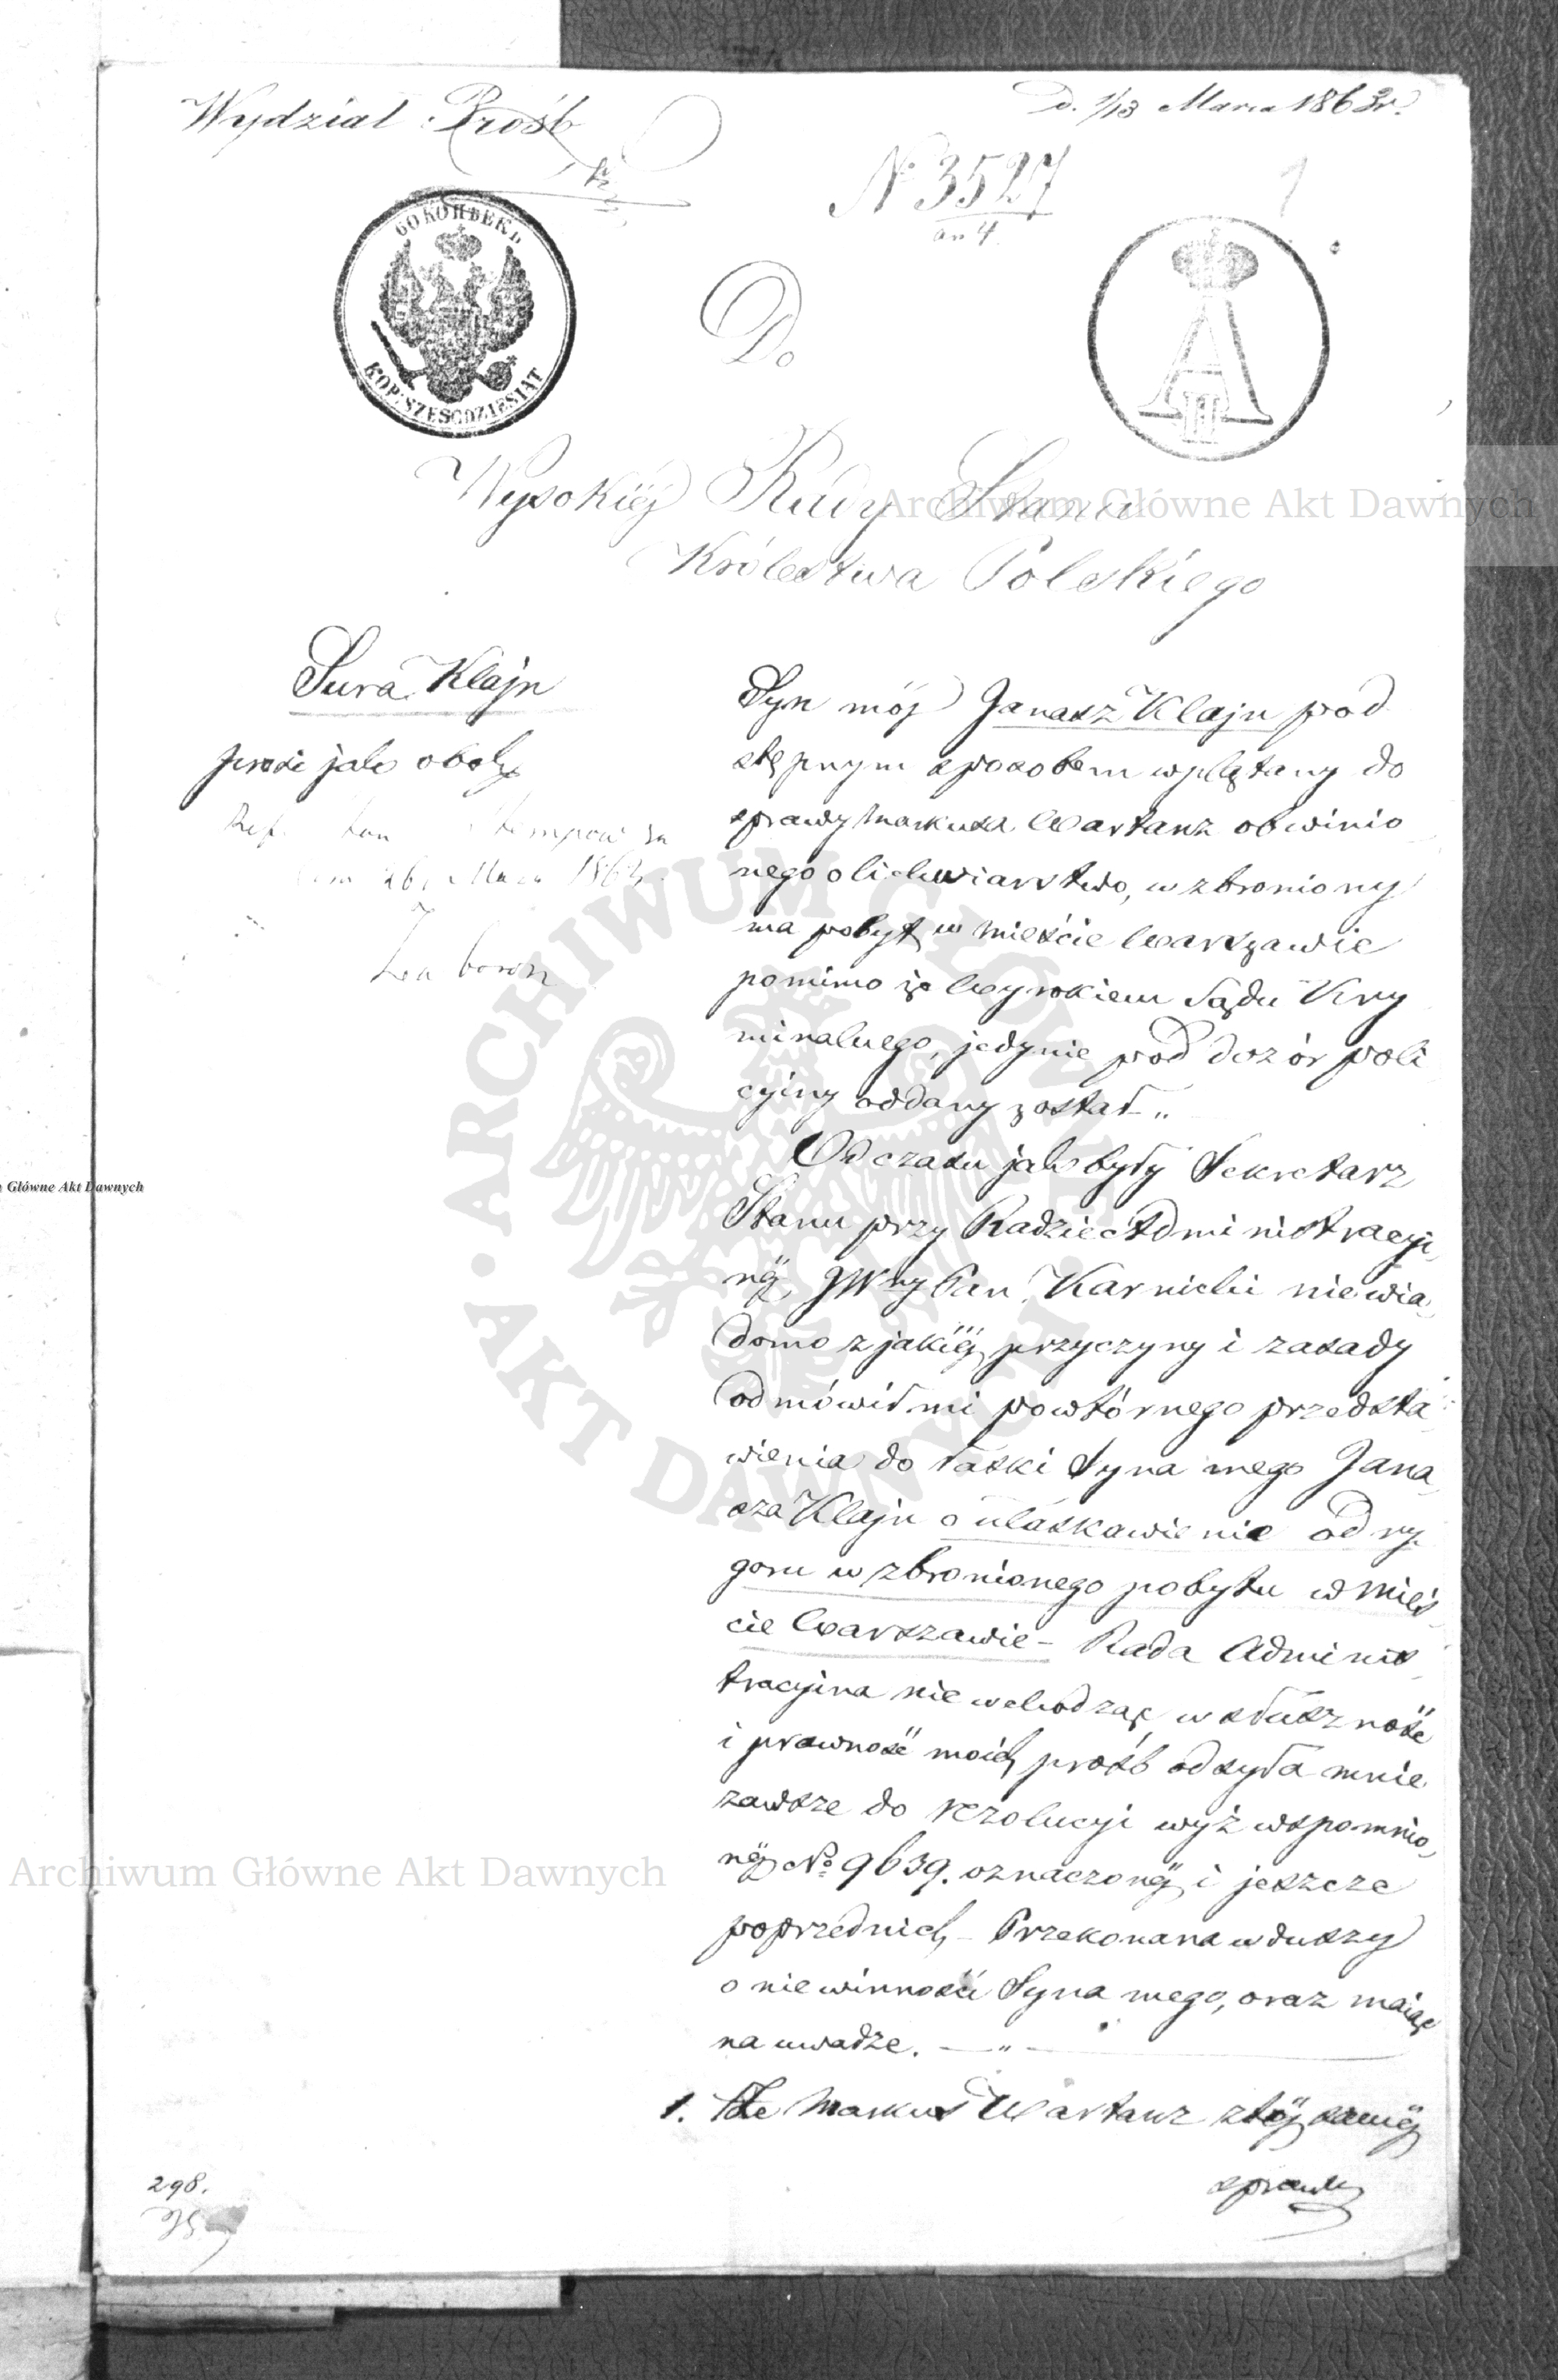 Wydział Prośb
D. 1/13 Marca 1863r.
N 3527
an 4.
1
60 КОПѢЕКЪ
KOP: SZEŚĆDZIESIĄT
A II
Do
Wysokiéj Rady Stanu
Królestwa Polskiego
Sura Klajn
prosi jak obok
26 Marca 1863
Syn mój Janasz Klajn pod
stępnym sposobem wplątany do
sprawy Markusa Wartanz obwinio
nego o lichwiarstwo, wzbroniony
ma pobyt w Mieście Warszawie
pomimo że Wyrokiem Sądu Kry
minalnego, jedynie pod dozór poli
cyiny oddany został „
Od czasu jak były Sekretarz
Stanu przy Radzie Administracyi
néj, JWny Pan Karnicki niewia
domo z jakiéj przyczyny i zasady
odmówił mi powtórnego przedsta
wienia do łaski Syna mego Jana
sza Klajn o ułaskawienie od ry
goru wzbronionego pobytu w Mieś
cie Warszawie – Rada Adminis
tracyina nie wchodząc w słuszność
i prawność moich prośb odsyła mnie
zawsze do rezolucyi wyż wspomnio
néj No 9639. oznaczonéj i jeszcze
poprzednich – Przekonana w duszy
o niewinności Syna mego, oraz maiąc
na uwadze. — „ —
1. Że Markus Wartanz z téj saméj
sprawy
298.
Archiwum Główne Akt Dawnych
Główne Akt Dawnych
ARCHIWUM GŁÓWNE • AKT DAWNYCH •
Archiwum Główne Akt Dawnych